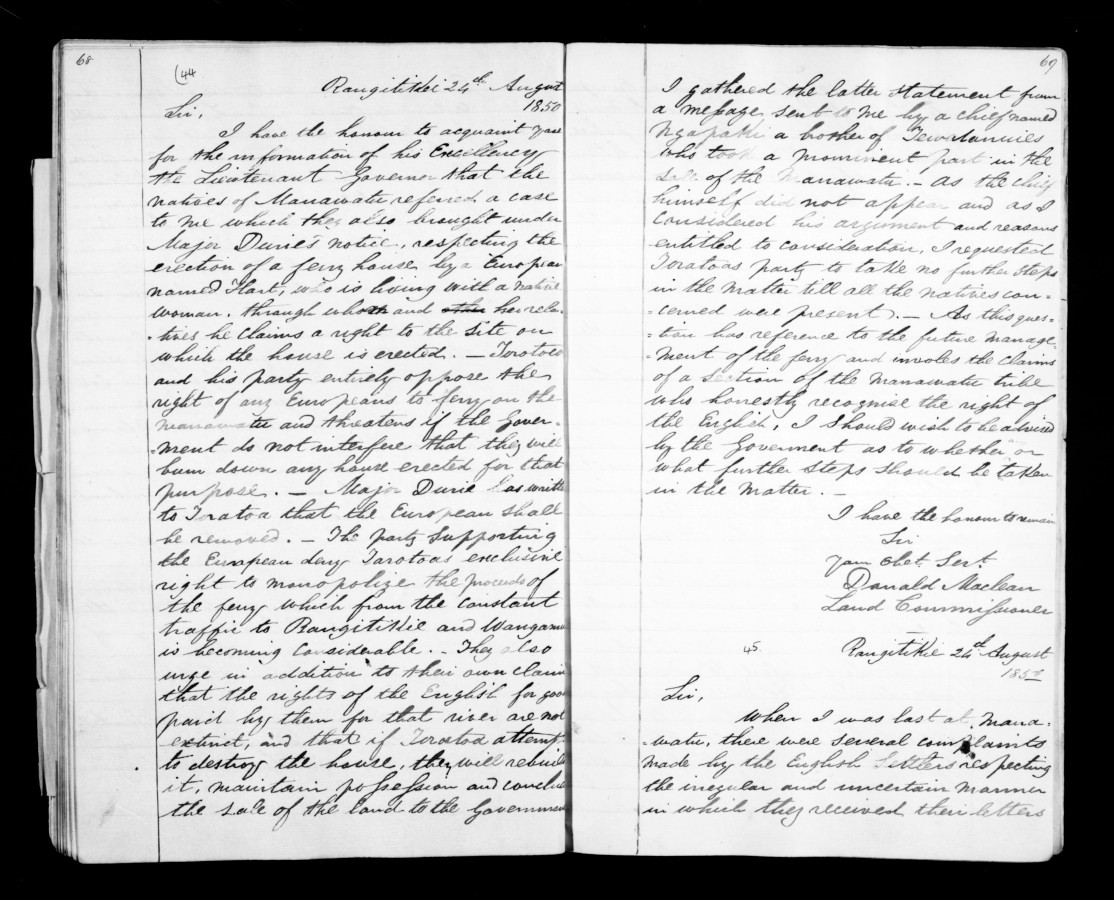 68
(44
Rangitikei 24th August
1850
Sir,
I have the honour to acquaint you
for the information of his Excellency
the Lieutenant Governor that the
natives of Manawatu referred a case
to me which they also brought under
Major Durie's notice, respecting the
erection of a ferry house by a European
named Hart, who is living with a native
woman. through whom and other her rela-
-tives he claims a right to the site on
which the house is erected. — Toratoa
and his party entirely oppose the
right of any Europeans to ferry on the
Manawatu and threatens if the Gover-
-ment do not interfere that they will
burn down any house erected for that
purpose. — Major Durie has written
to Toratoa that the European shall
be removed. — The party supporting
the European deny Taratoas exclusive
right to monopolize the proceeds of
the ferry which from the constant
traffic to Rangitikie and Wanganui
is becoming considerable. — They also
urge in addition to their own claim
that the rights of the English for goods
paid by them for that river are not
extinct, and that if Toratoa attempt
to destroy the house, they will rebuild
it, maintain possession and conclude
the sale of the land to the Government
69
I gathered the latter statement from
a message sent to me by a chief named
Ngapaki a bother of
who took a prominent part in the
sale of the Manawatu. — As the chief
himself did not appear and as I
considered his argument and reasons
entitled to consideration, I requested
Toratoas party to take no further steps
in the matter till all the natives con-
-cerned were present. — As this ques-
-tion has reference to the future manage-
-ment of the ferry and involes the claims
of a section of the Manawatu tribe
who honestly recognise the right of
the English, I should wish to be advised
by the Goverment as to whether or
what further steps should be taken
in the matter. —
I have the honour to remain
Sir
Your Obet. Servt.
Donald Maclean
Land Commissioner
45.
Rangitikie 24th August
1850
Sir,
When I was last at Mana-
-watu, there were several complaints
made by the English Settlers respecting
the irregular and uncertain manner
in which they received their letters